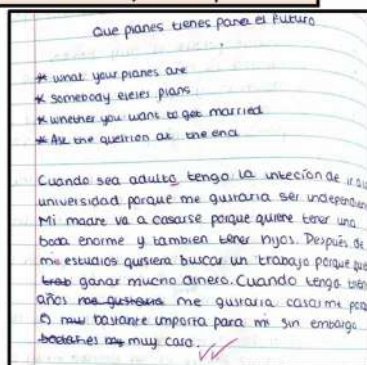 Que planes tienes para el futuro
* what your planes are
* somebody eleles plans
* whether you want to get married
* Ask the question at the end
Cuando sea adulto tengo la intecion de ir a la
universidad porque me gustaria ser independien
Mi madre va a casarse porque quiere tener una
boda enorme y tambien tener hijos. Después de
mi estudios quisiera buscar un trabajo porque que
ganar mucho dinero. Cuando tenga
años me gustaria casarme porq
es bastante importa para mi sin embargo
es muy caro.